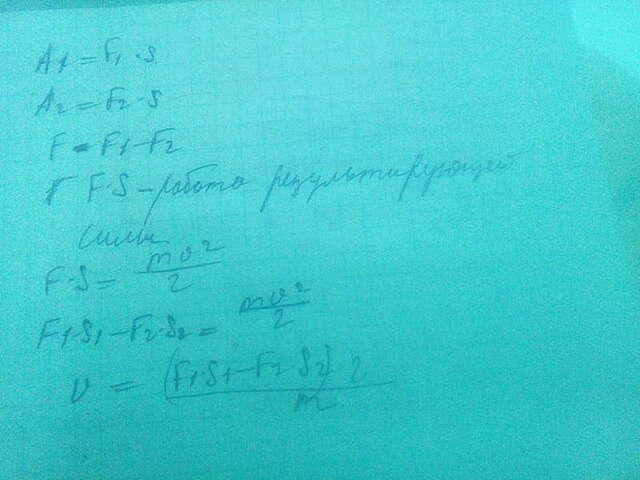 A1 = F1 · S
A2 = F2 · S
F = F1 - F2
F · S - работа результирующей
силы
F · S = mv²/2
F1 · S1 - F2 · S2 = mv²/2
v = (F1 · S1 - F2 · S2) · 2/m